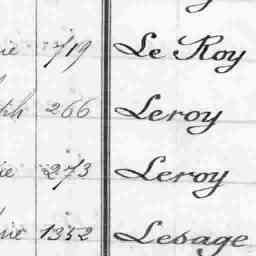 719 Le Roy
266 Leroy
273 Leroy
1352 Lesage